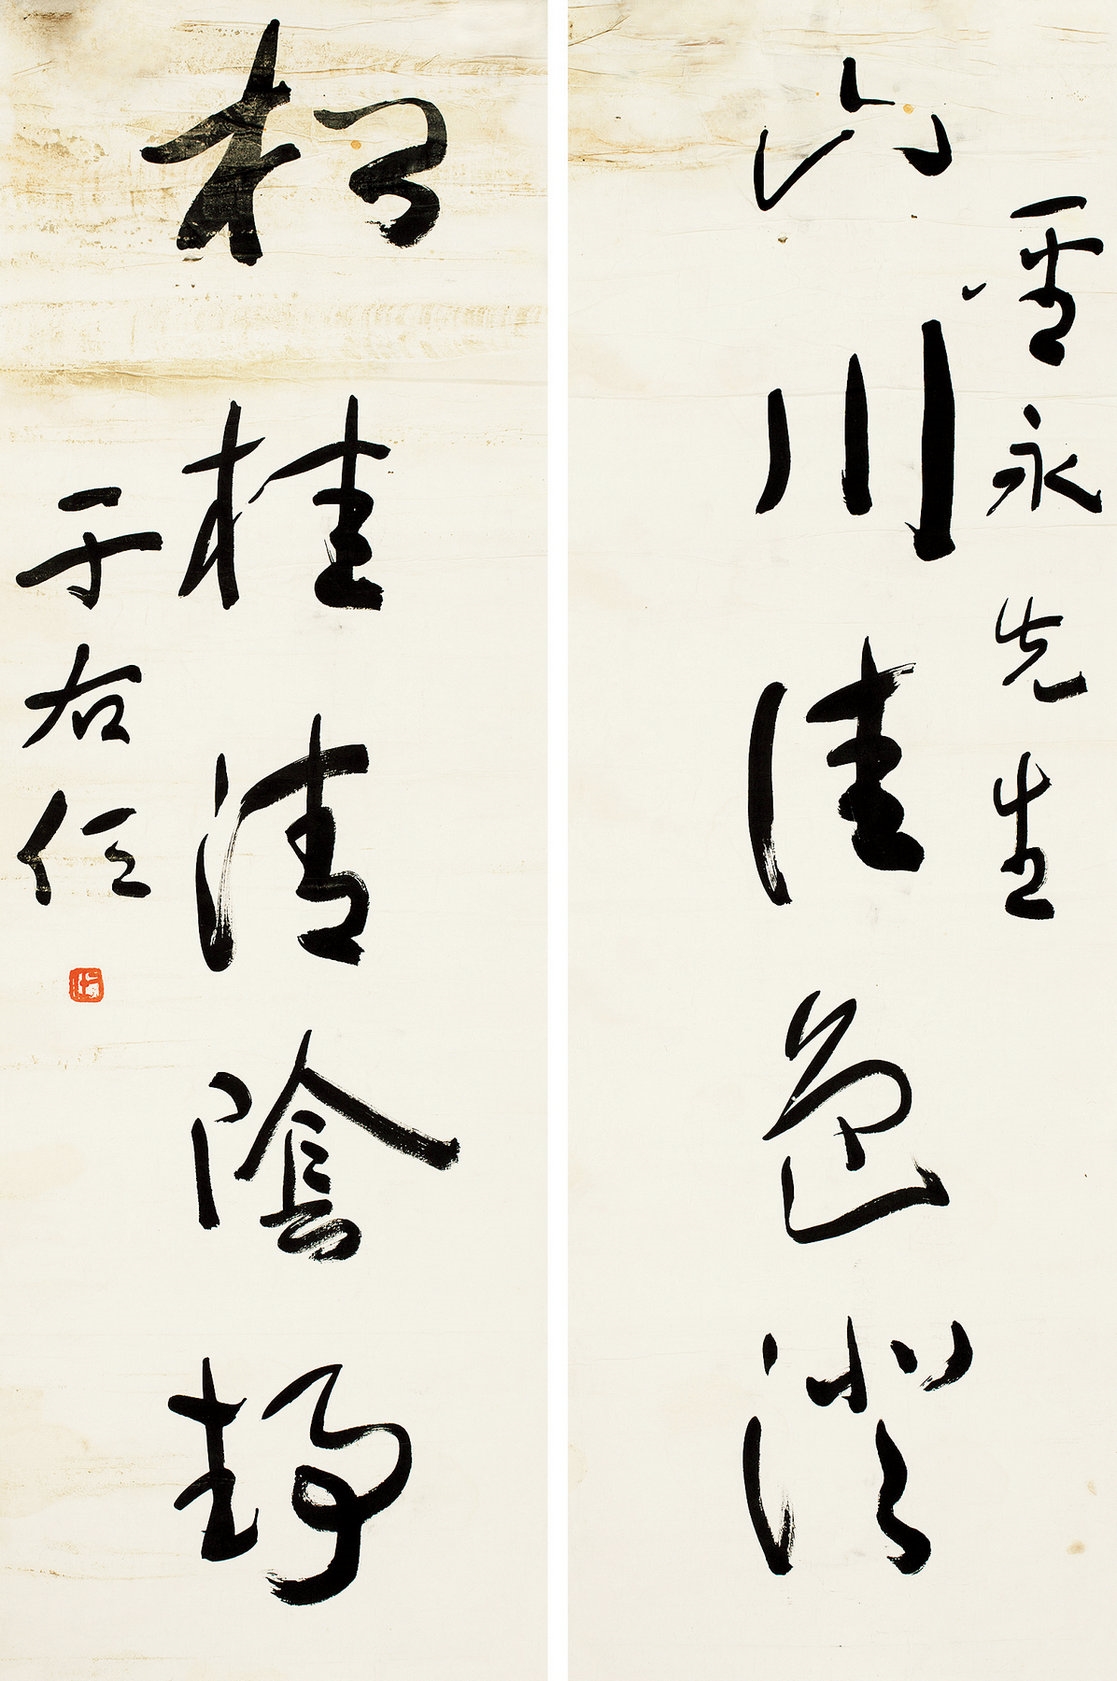 永先生
山川佳色澄
松桂清陰靜
于右任